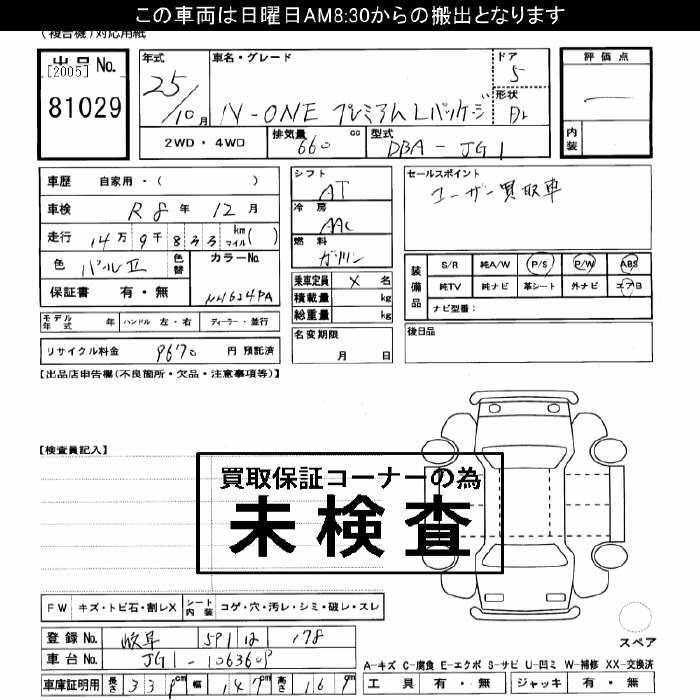 この車両は日曜日AM8:30からの搬出となります
(複合機)対応用紙
出品No.
[2005]
81029
年式
25/10月
車名・グレード
N-ONE プレミアム Lパッケージ
ドア
5
形状
評価点
内装
2WD・4WD
排気量
660
cc
型式
DBA-JG1
車歴 自家用・( )
車検 R8年12月
走行 14万9千8 km マイル( )
色 パールII
色替
カラーNo.
NH624PA
保証書 有・無
シフト
AT
冷房
AAC
燃料
ガソリン
乗車定員 X 名
積載量 kg
総重量 kg
名変期限
月 日
セールスポイント
ユーザー買取車
装備品
S/R 純A/W P/S P/W ABS
純TV 純ナビ 革シート 外ナビ エアB
ナビ型番:
後日品
モデル年式 年 ハンドル 左・右 ディーラー・並行
リサイクル料金 9670 円 預託済
【出品店申告欄(不良箇所・欠品・注意事項等)】
【検査員記入】
買取保証コーナーの為
未検査
FW キズ・トビ石・割レX
シート内装 コゲ・穴・汚レ・シミ・破レ・スレ
登録No. 岐阜 591 は 178
車台No. JG1-1063609
車庫証明用 長さ 339cm 幅 147cm 高さ 161cm
スペア
A-キズ C-腐食 E-エクボ S-サビ U-凹ミ W-補修 XX-交換済
工具 有・無 ジャッキ 有・無